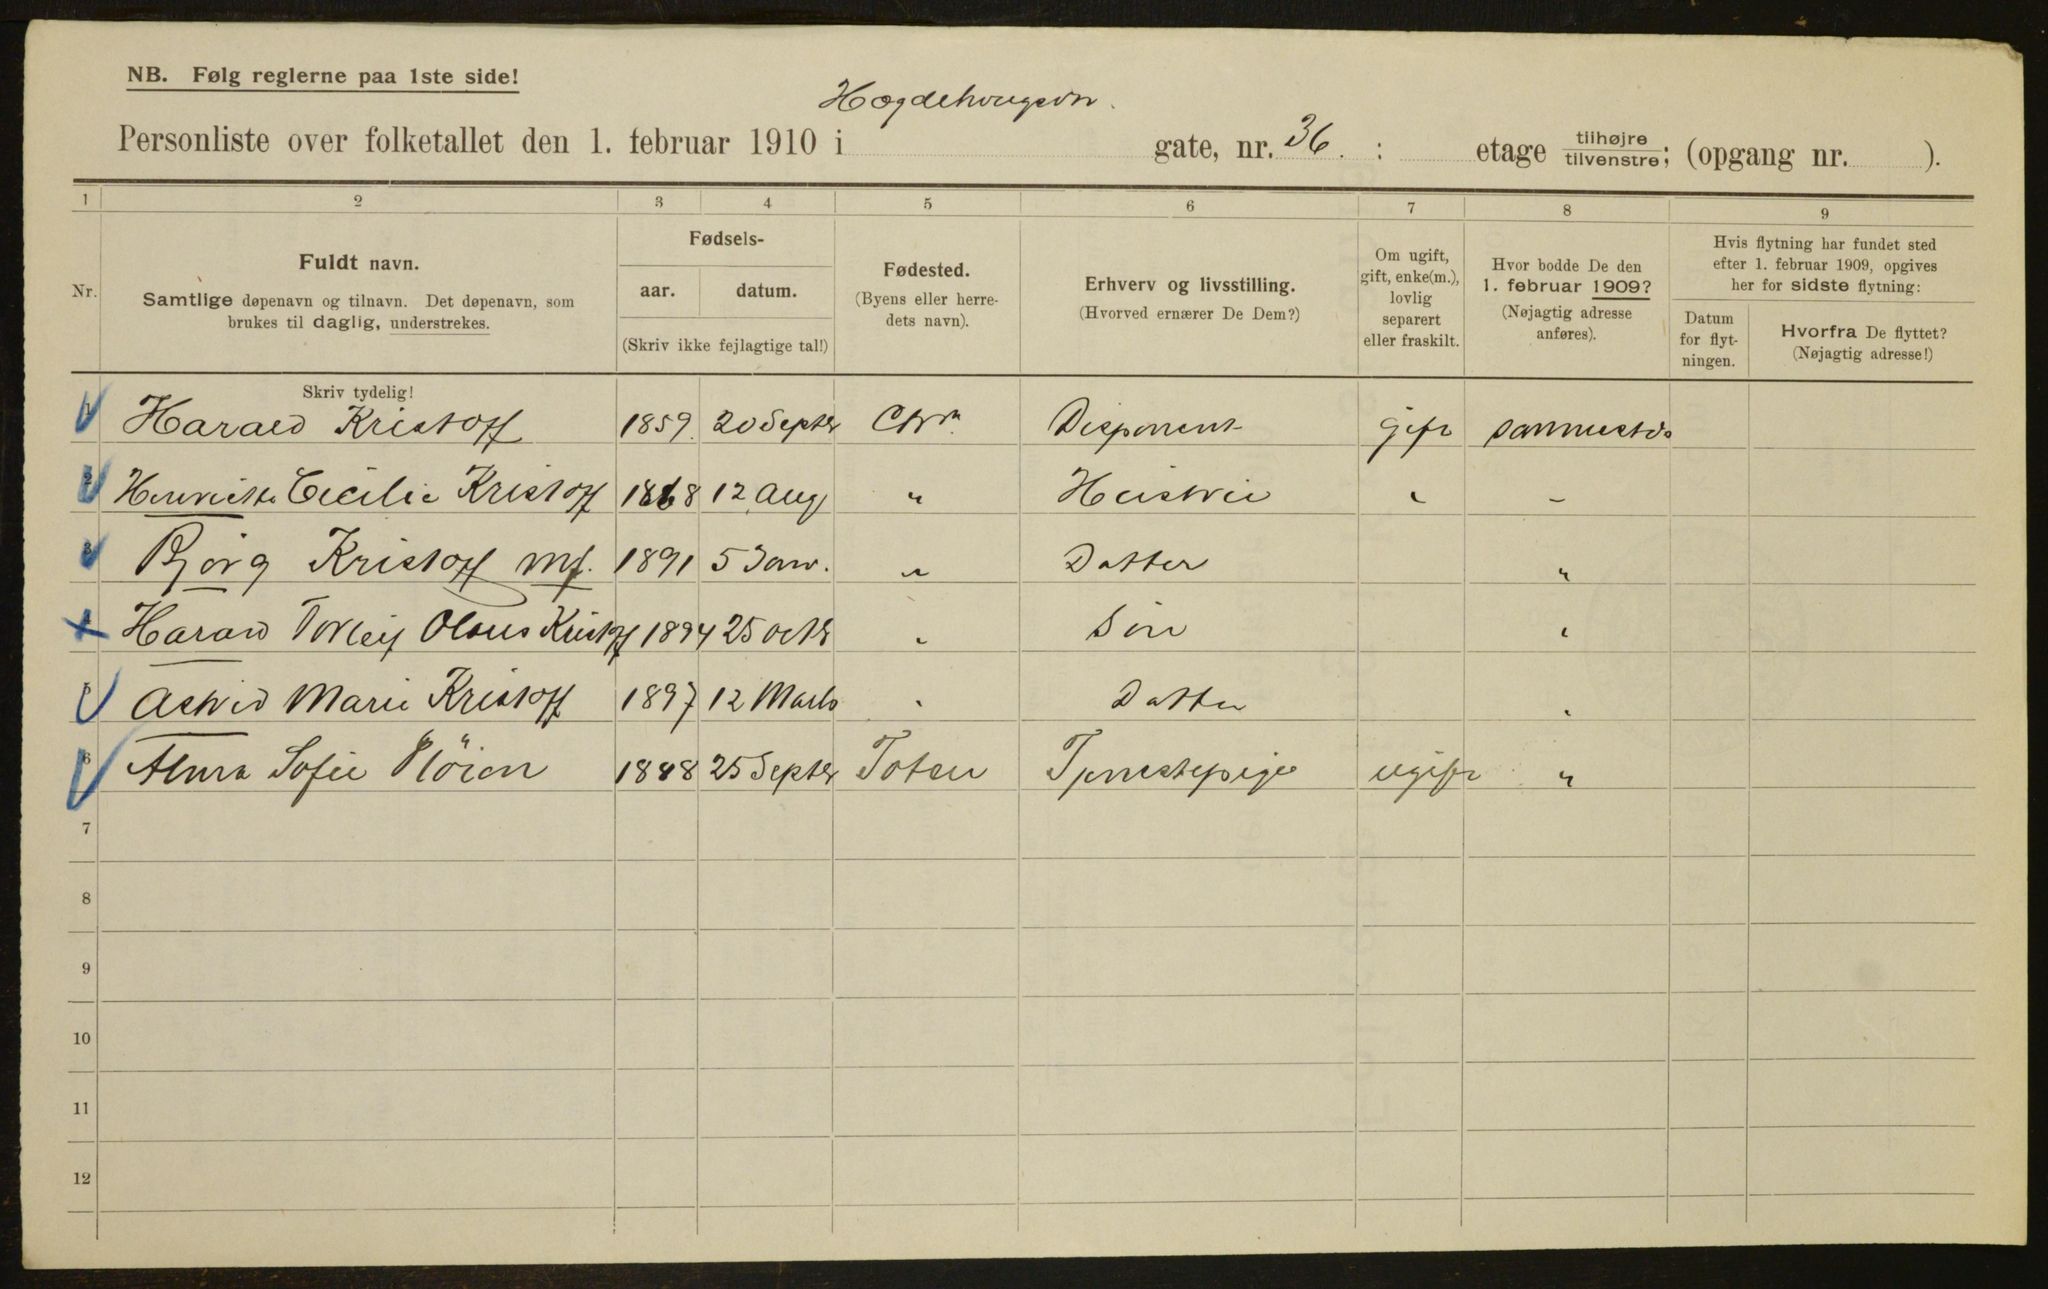 NB. Følg reglerne paa 1ste side!
Hægdehougsvn.
Personliste over folketallet den 1. februar 1910 i gate, nr. 36. : etage tilhøjre tilvenstre; (opgang nr. ).
1 2 3 4 5 6 7 8 9
Nr.
Fuldt navn.
Samtlige døpenavn og tilnavn. Det døpenavn, som
brukes til daglig, understrekes.
Fødsels-
aar. datum.
(Skriv ikke fejlagtige tal!)
Fødested.
(Byens eller herre-
dets navn).
Erhverv og livsstilling.
(Hvorved ernærer De Dem?)
Om ugift,
gift, enke(m.),
lovlig
separert
eller fraskilt.
Hvor bodde De den
1. februar 1909?
(Nøjagtig adresse
anføres).
Hvis flytning har fundet sted
efter 1. februar 1909, opgives
her for sidste flytning:
Datum
for flyt-
ningen.
Hvorfra De flyttet?
(Nøjagtig adresse!)
Skriv tydelig!
1 Harald Kristoff 1859. 20 Septbr Chra Disponent gift sammesteds
2 Henriette Cecilie Kristoff 1868 12 Aug " Hustru " –
3 Bjørg Kristoff 1891 5 Jan. " Datter "
4 Harald Torleif Olaus Kristoff 1894 25 octb " Søn "
5 Astrid Marie Kristoff 1897 12 Marts " Datter "
6 Sofie 1848 25 Septbr Toten Tjenestepige ugift "
7
8
9
10
11
12